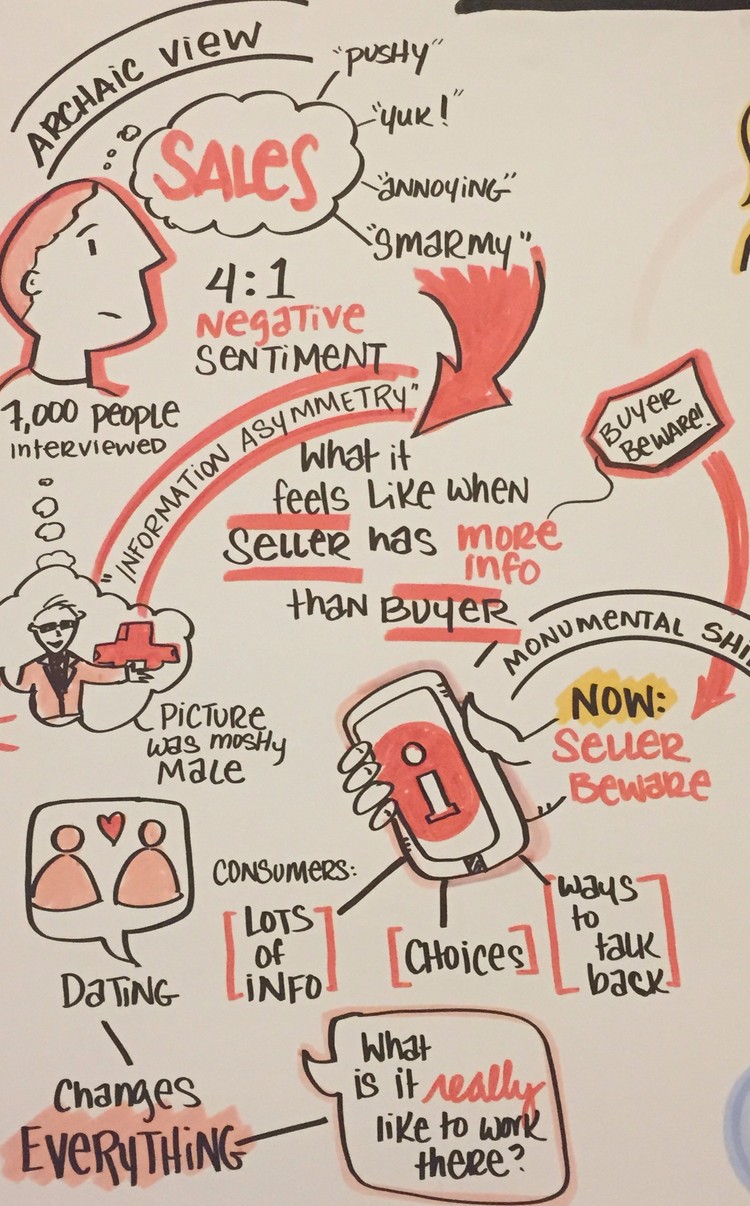 ARCHAIC VIEW
"PUSHY"
"YUK!"
SALES
"ANNOYING"
"SMARMY"
4:1
NEGATIVE
SENTIMENT
7,000 PEOPLE
INTERVIEWED
"INFORMATION ASYMMETRY"
What it
feels Like when
SELLER has more
info
than BUYER
BUYER
BEWARE!
PICTURE
was mostly
Male
MONUMENTAL SHI
NOW:
SELLER
BEWARE
i
CONSUMERS:
LOTS
of
INFO
CHOICES
ways
to
talk
back
DATING
Changes
EVERYTHING
What
is it really
like to work
there?